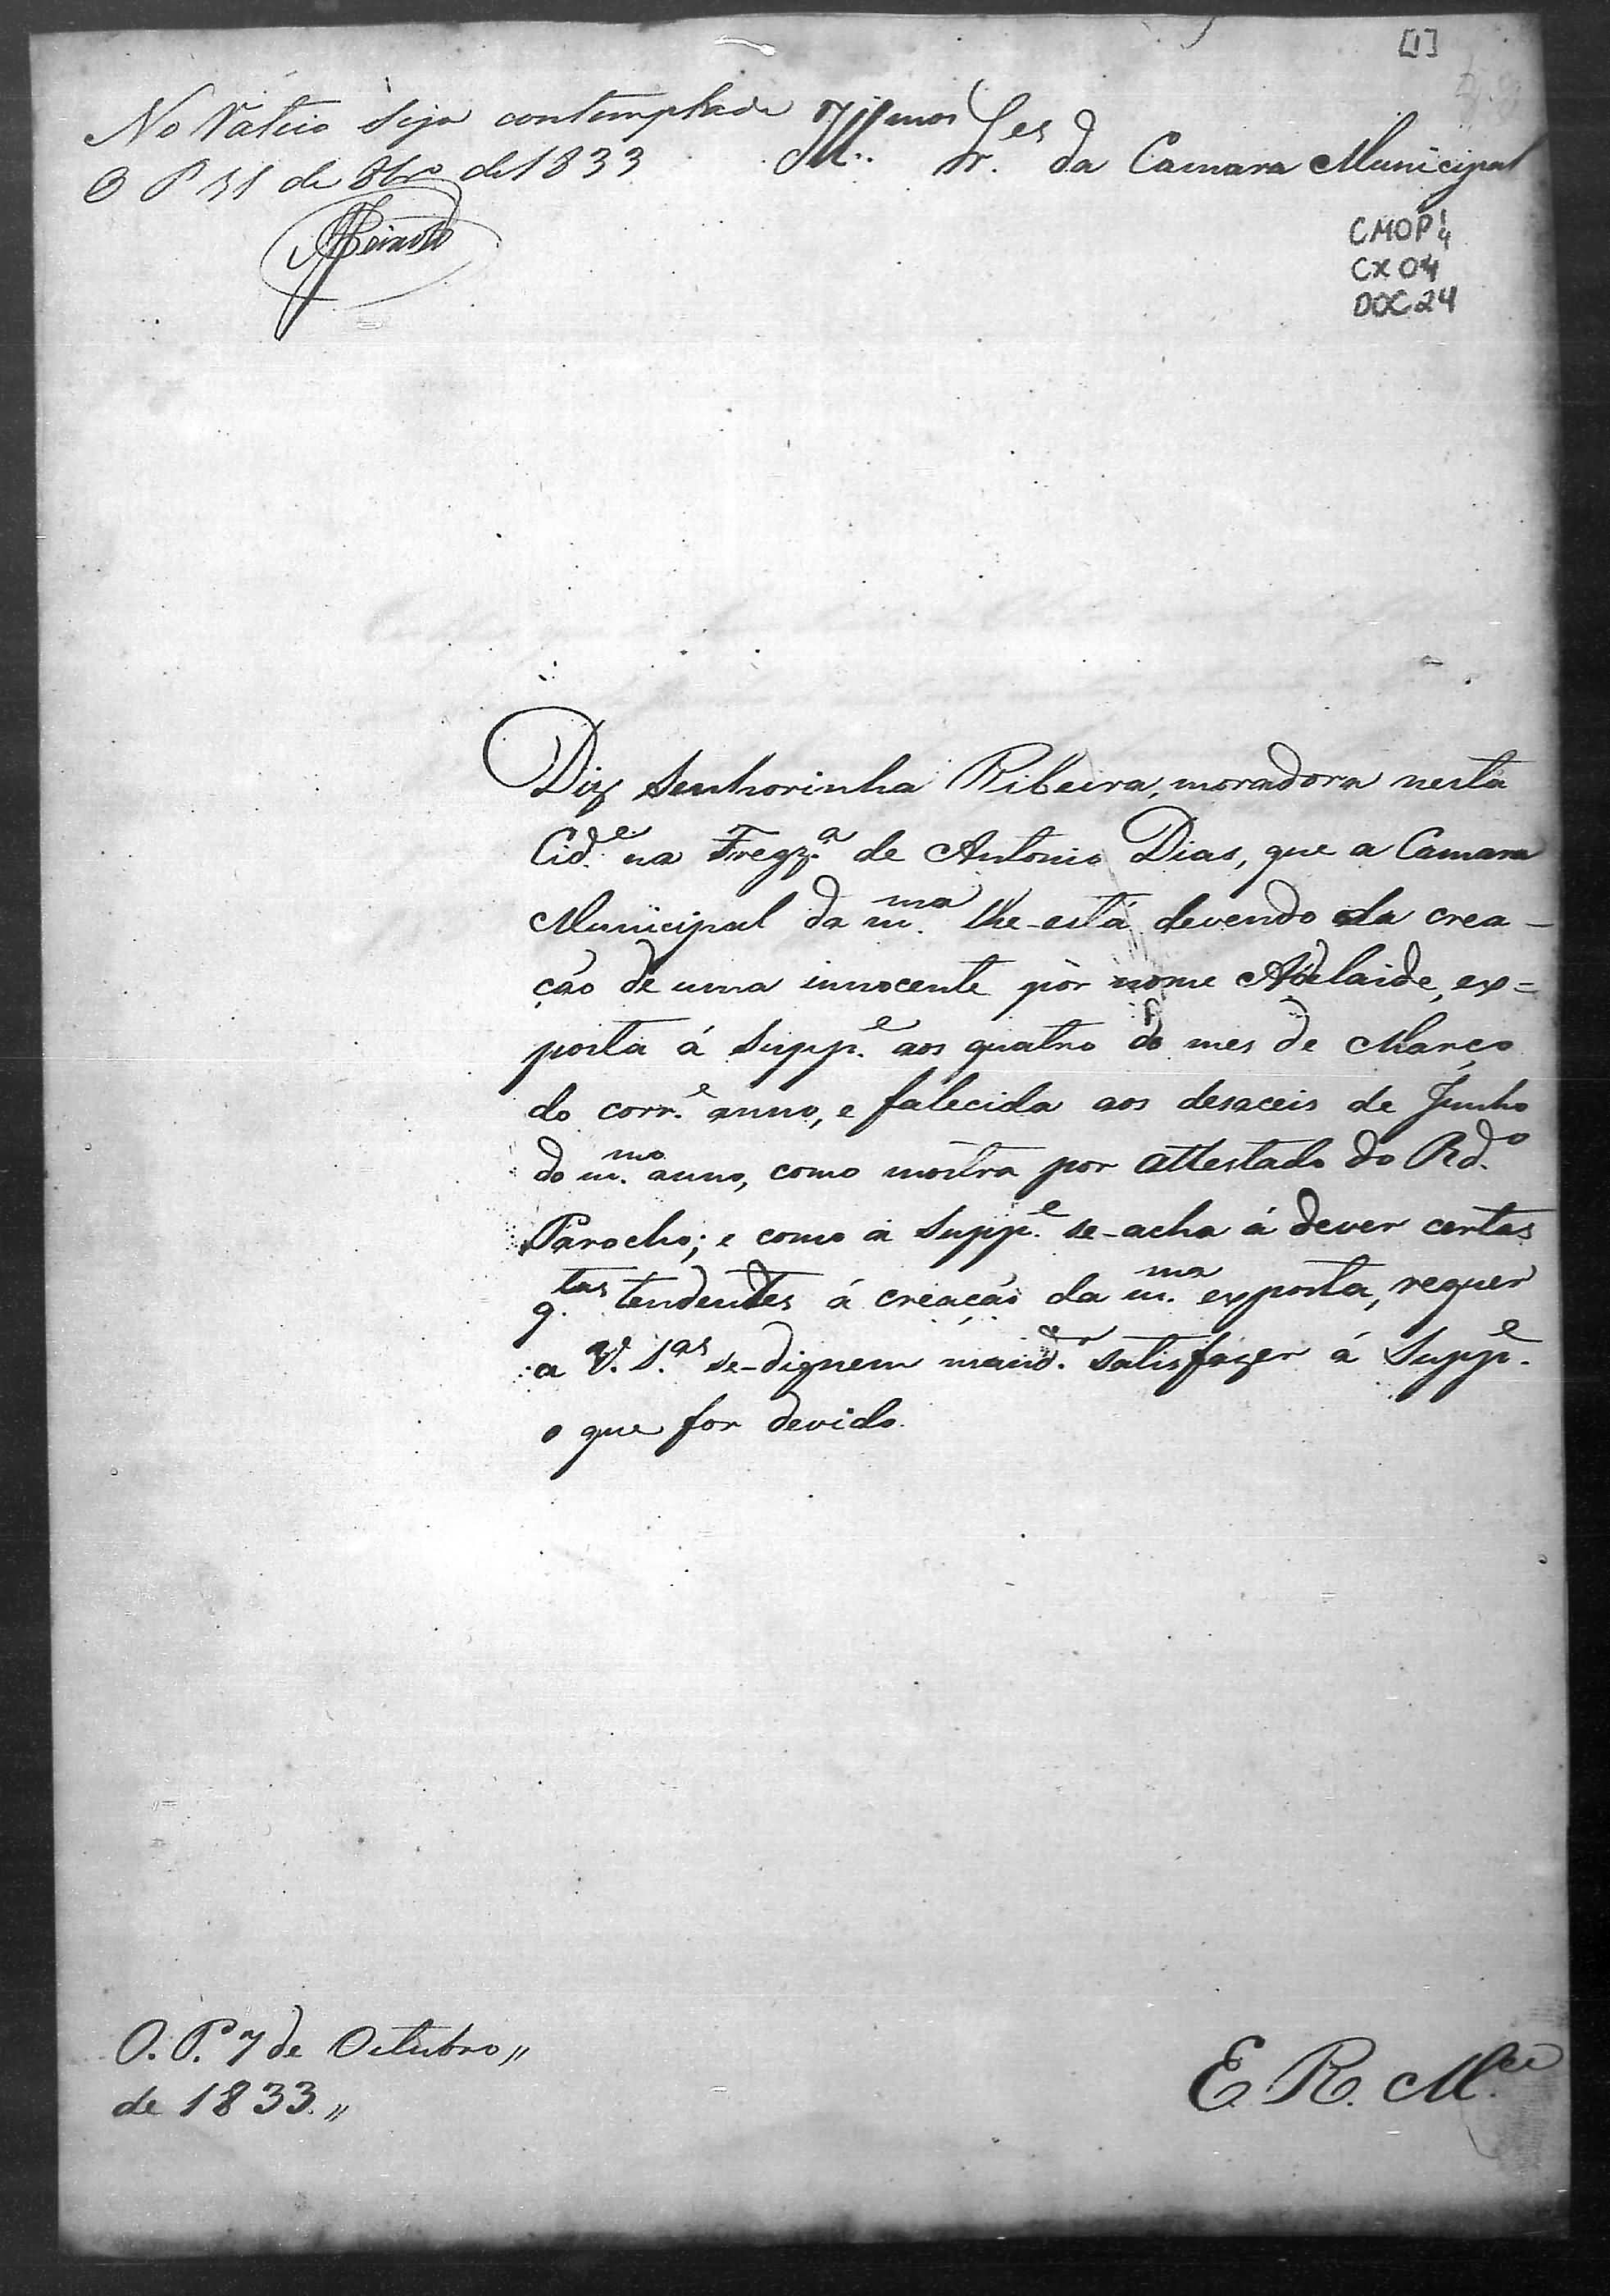 [1]
No Rateio seja contemplada
O P 31 de 8bro de 1833
Illmos Sres da Camara Municipal
CMOP 1/4
CX 04
DOC 24
Diz Senhorinha Ribeira, moradora nesta
Cid.e na Fregz.a de Antonio Dias, que a Camara
Municipal da m.ma lhe-está devendo da crea-
ção de uma innocente por nome Adelaide, ex=
posta á Supp.e aos quatro do mes de Março
do corr.e anno, e falecida aos desaceis de Junho
do m.mo anno, como mostra por attestado do Rd.o
Parocho; e como a Supp.e se-acha á dever certas
q.tas tendentes á creação da m.ma exposta, requer
a V. S.as se-dignem mand.ar satisfazer á Supp.e
o que for devido.
O. P. 7 de Outubro,,
de 1833,,
E. R. M.ce